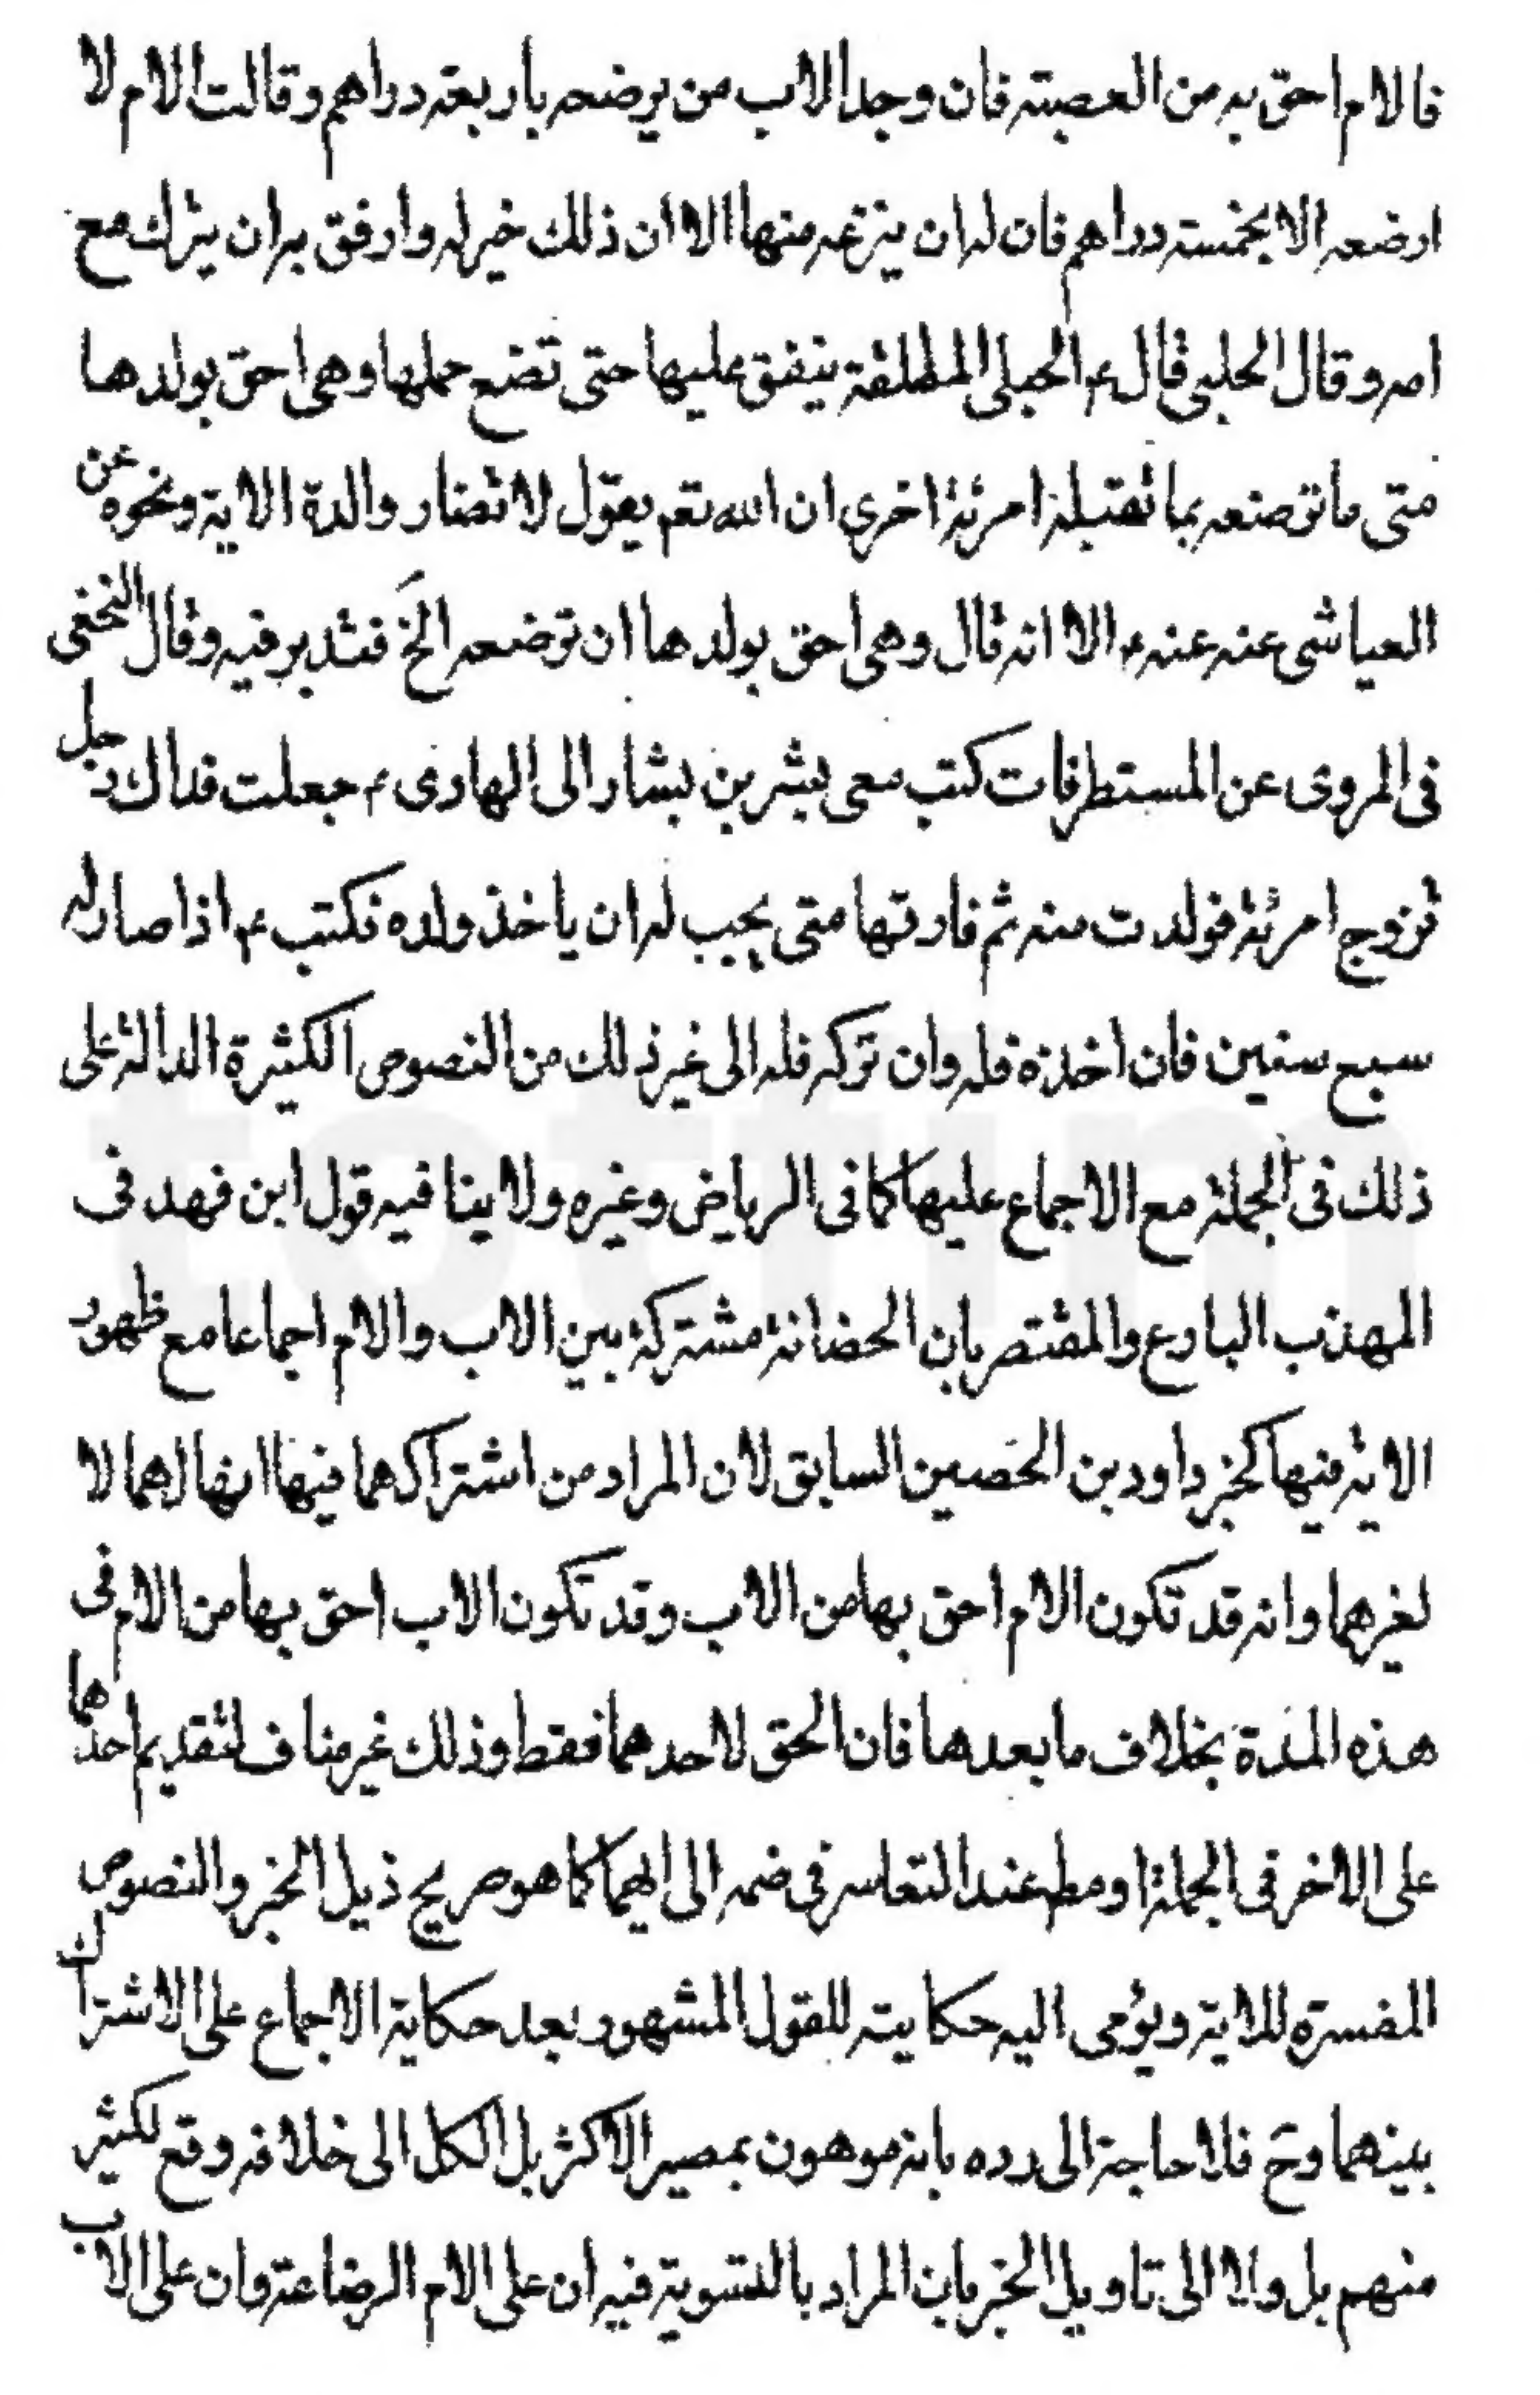 فالام احق به من العصبته فان وجد الاب من يرضعه باربعة دراهم وقالت الام لا
ارضعه الا بخمسته دراهم فان له ان ينزعه منها الا ان ذلك خير له وارفق به ان يترك مع
امه وقال الحلبى قال ع الحبلى المطلقة ينفق عليها حتى تضع حملها وهى احق بولدها
متى ما ترضعه بما تقبله امرئة اخرى ان الله تعم يقول لا تضار والدة الاية ونحوه عن
العياشى عنه عنه ع الا انه قال وهى احق بولدها ان ترضعه الخ فتدبر فيه وقال النخعى
فى المروى عن المستطرفات كتب معى بشر بن بشار الى الهادى ع جعلت فداك رجل
تزوج امرئة فولدت منه ثم فارقها متى يجب له ان ياخذ ولده فكتب ع اذا صار له
سبع سنين فان اخذه فله وان تركه فله الى غير ذلك من النصوص الكثيرة الدالة على
ذلك فى الجملة مع الاجماع عليها كما فى الرياض وغيره ولا ينافيه قول ابن فهد فى
المهذب البارع والمقتصر بان الحضانة مشتركة بين الاب والام اجماعا مع ظهور
الاية فيها كخبر داود بن الحصين السابق لان المراد من اشتراكهما فيها انها لهما لا
لغيرهما وانه قد تكون الام احق بها من الاب وقد تكون الاب احق بها من الام فى
هذه المدة بخلاف ما بعدها فان الحق لاحدهما فقط وذلك غير مناف لتقديم احدهما
على الاخر فى الجملة او مط عند التعاسر فى ضمه الى ايهما كما هو صريح ذيل الخبر والنصوص
المفسرة للاية ويؤمى اليه حكايته للقول المشهور بعد حكاية الاجماع على الاشتراك
بينهما وح فلا حاجة الى رده بانه موهون بمصير الاكثر بل الكل الى خلافه وقع لكثير
منهم بل ولا الى تاويل الخبر بان المراد بالتسوية فيه ان على الام الرضاعة وان على الاب